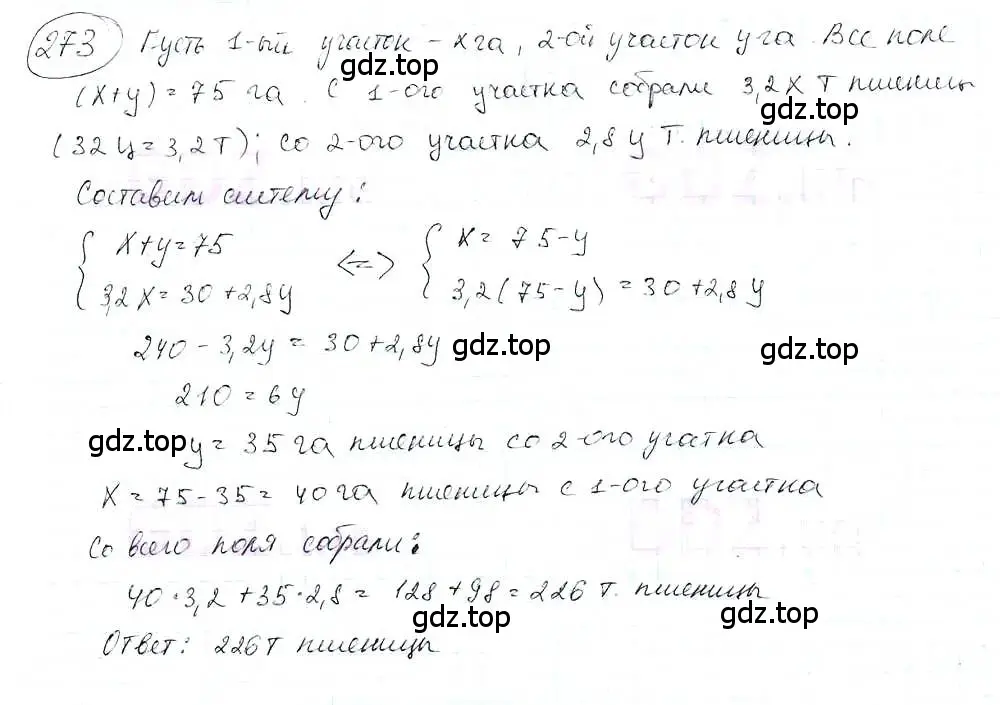 273 Пусть 1-ый участок - x га, 2-ой участок y га. Все поле
gdz.top
(x+y) = 75 га. С 1-ого участка собрали 3,2x т пшеницы
(32 ц = 3,2 т); со 2-ого участка 2,8 y т. пшеницы.
gdz.top gdz.top
Составим систему:
{ x+y=75 <=> { x = 75-y
{ 3,2x = 30+2,8y { 3,2(75-y) = 30+2,8y
240 - 3,2y = 30+2,8y gdz.top gdz.top
210 = 6y
gdz.top y = 35 га пшеницы со 2-ого участка
x = 75-35 = 40 га пшеницы с 1-ого участка
gdz.top
Со всего поля собрали:
40·3,2+35·2,8 = 128+98 = 226 т. пшеницы
gdz.top gdz.top
Ответ: 226 т пшеницы